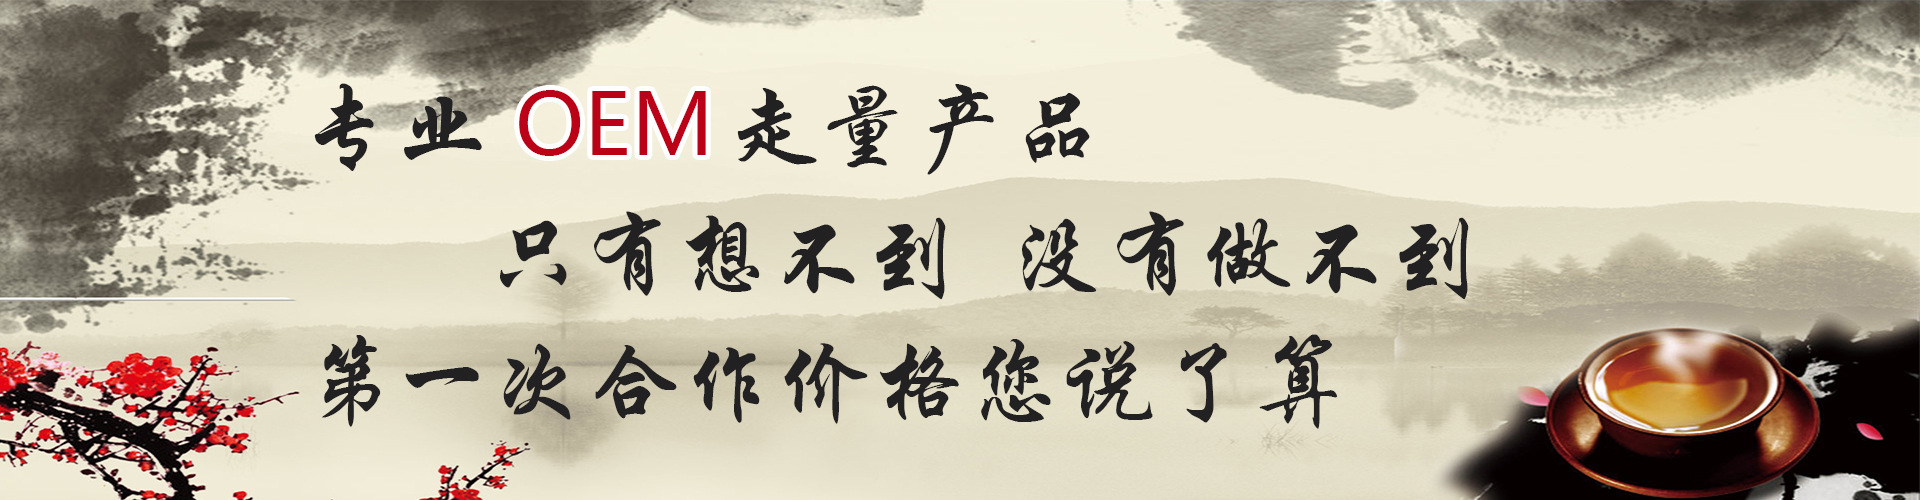 专业OEM走量产品
只有想不到 没有做不到
第一次合作价格您说了算